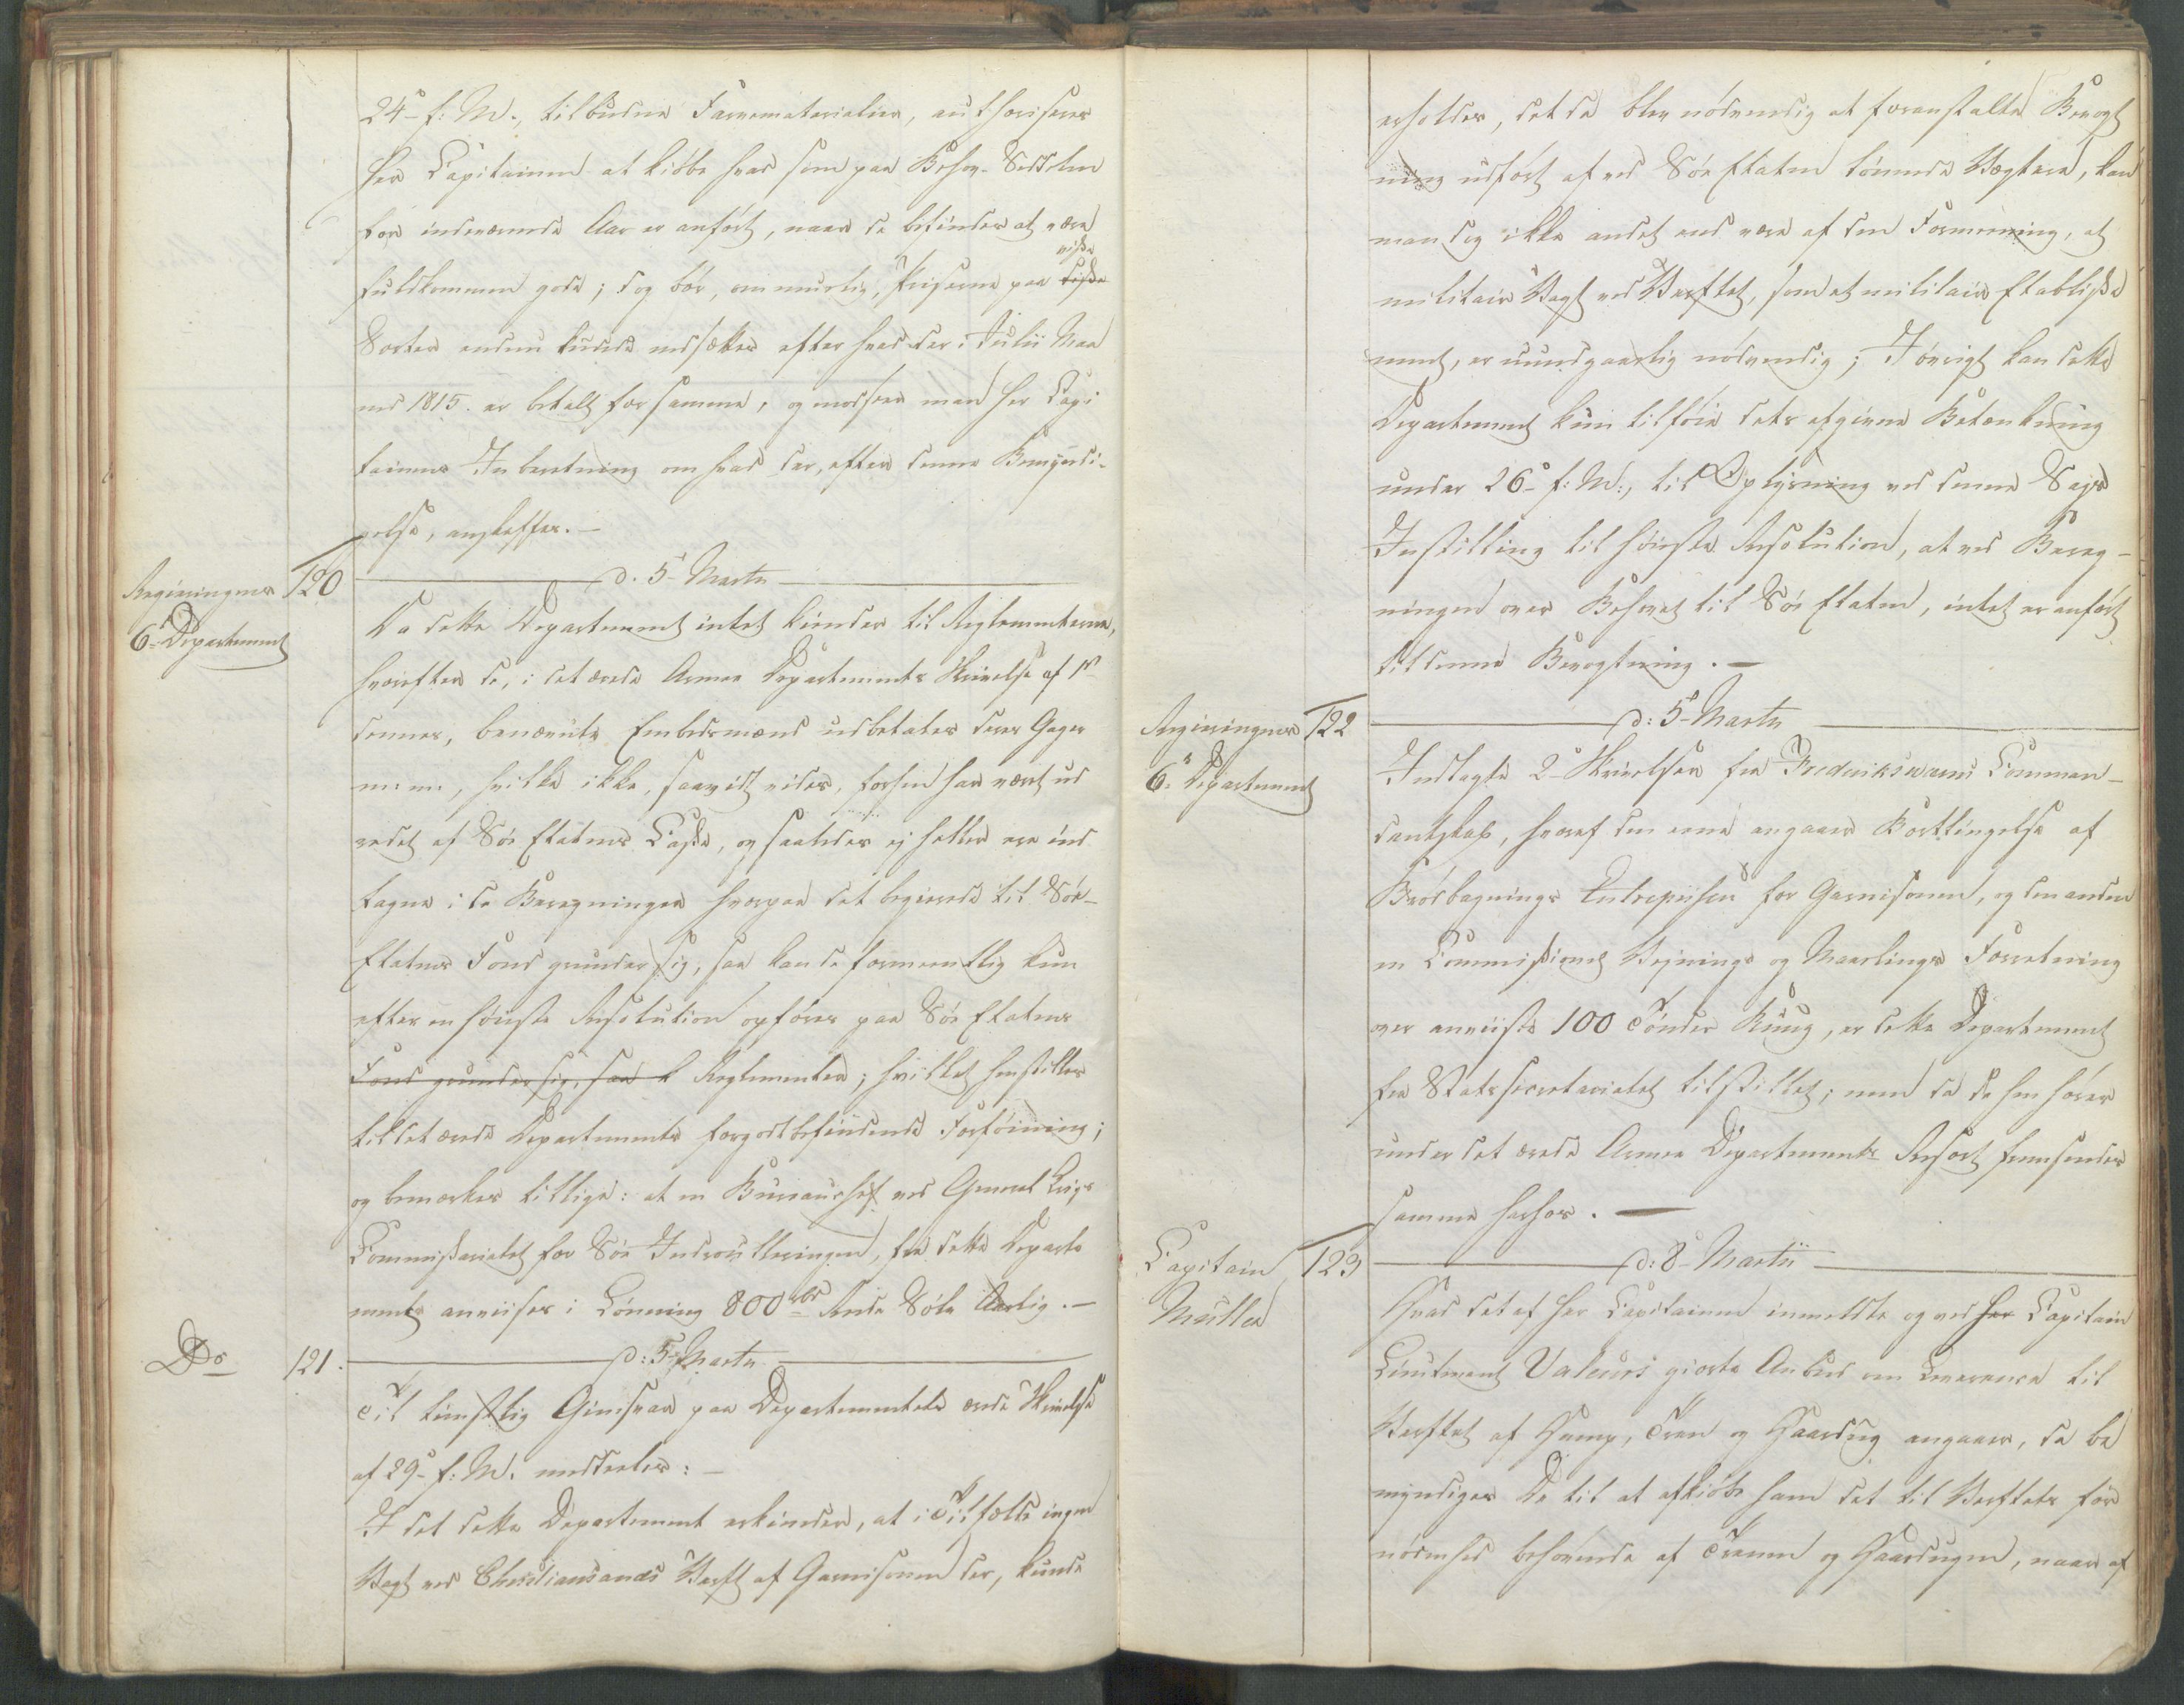 24de f: M., tilbudne Farvematerialier, authoriseres
Herr Capitainen at kiöbe hvad som paa Behov-Sedelen
for indeværende Aar er anfört, naar de befindes at være
fuldkommen gode; dog bör, om muelig, Priserne paa disse visse
Sorter endnu kunde nedsættes efter hvad der i Julii Maa
ned 1815. er betalt for samme, og modseer man Hr Capi
tainens Inberetning om hvad der, efter denne Bemyndi-
gelse, anskaffes.—
Regieringens 120 d. 5te Martii
6te Departement
Da dette Departement intet kiender til Reglementerne,
hvorefter de, i det ærede Armee Departements Skrivelse af 1ste
dennes, benævnte Embedsmænd udbetales deres Gager
m: m:, hvilke ikke, saavidt vides, forhen har været ud
redet af Söe Etatens Casse, og saaledes ej heller ere ind
tagne i de Beregninger hvorpaa det begierede til Söe-
Etatens Fond grunder sig, saa kan de formeentlig kun
efter en höieste Resolution opföres paa Söe Etatens
Fond grunder sig, saa k Reglementer; hvilket henstilles
til det ærede Departements forgodtbefindende Forföining;
og bemærkes tillige: at en Bureauchef ved General Krigs
Commissariatet for Söe Indroulleringen, fra dette Departe
ment anviises i Lönning 800 rbd rede Sölv Aarlig.—
Do 121. d: 5te Martii
Til tienstlig Giensvar paa Departementets ærede Skrivelse
af 29de f: M. meddeeles:—
I det dette Departement erkiender, at i Tilfælde ingen
Vagt ved Christiansands Verft af Garnisonen der, kunde
erholdes, det da blev nödvendig at foranstalte Bevogt
ning udfört af ved Söe Etaten lönnede Vægtere, kan
man dog ikke andet end være af den Formening, at
militair Vagt ved Verftet, som et militair Etablisse
ment, er uundgaaelig nödvendig; I övrigt kan dette
Departement kun tilföie dets afgivne Betænkning
under 26de f: M:, til Oplysning ved denne Sags
Indstilling til höieste Resolution, at ved Bereg-
ningen over Behovet til Söe Etaten, intet er anfört
til denne Bevogtning.—
Regieringens 122 d: 5te Martii
6te Departement
Indlagte 2de Skrivelser fra Frederiksværns Comman-
dantskab, hvoraf den eene angaaer Bortlingelse af
Brödbagnings Entreprisen for Garnisonen, og den anden
en Commissions Vejnings og Maalings Forretning
over anviiste 100 Tönder Rung, er dette Departement
fra Statssecretariatet tilstillet; men da de henhörer
under det ærede Armee Departements Resort fremsendes
samme herhos.—
Capitain 123 d: 8de Martii
Müller
Hvad det af Herr Capitainen inmeldte og ved Herr Capitain
Lieutenant Valeurs giorte Anbud om Leverance til
Verftet af Hamp, Tran og Haardug angaaer, da be
myndiges De til at afkiöbe ham det til Verftets for
nödenhed behövende af Tranen og Haardugen, naar af